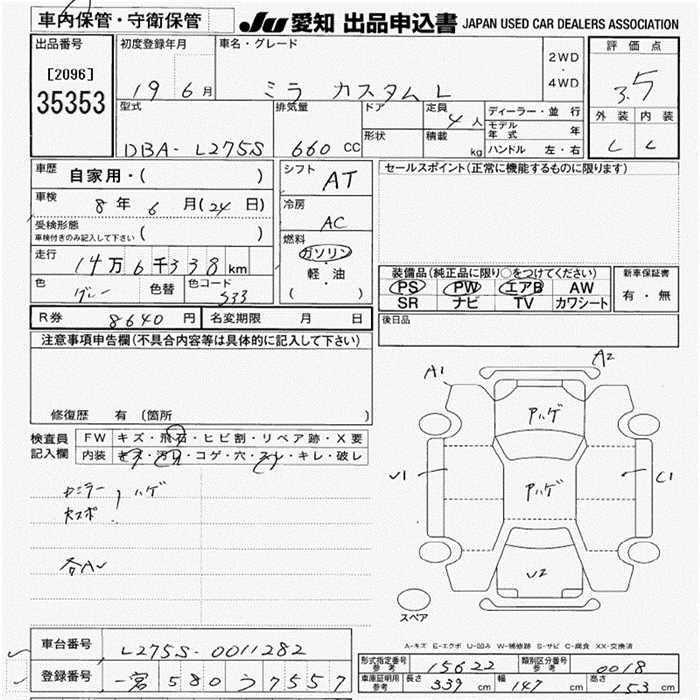 車内保管・守衛保管
JU 愛知 出品申込書 JAPAN USED CAR DEALERS ASSOCIATION
出品番号
[2096]
35353
初度登録年月
19 6 月
車名・グレード
ミラ カスタム L
2WD
・
4WD
評価点
3.5
外装 内装
型式
DBA- L275S
排気量
660 CC
ドア
形状
定員
4 人
積載
kg
ディーラー・並行
モデル年式 年
ハンドル 左・右
車歴
自家用・( )
車検
8 年 6 月(24 日)
受検形態
車検付きのみ記入して下さい ( )
走行
14 万 6 千 3 3 8 km
色
グレー
色替
色コード
S33
シフト
AT
冷房
AC
燃料
ガソリン
・
軽・油
( )
セールスポイント(正常に機能するものに限ります)
装備品(純正品に限り○をつけてください)
PS PW エアB AW
SR ナビ TV カワシート
新車保証書
有・無
R券 8640 円 名変期限 月 日
後日品
注意事項申告欄(不具合内容等は具体的に記入して下さい)
修復歴 有(箇所 )
検査員
記入欄
FW キズ・飛石・ヒビ割・リペア跡・X要
内装 キズ・汚れ・コゲ・穴・スレ・キレ・破レ
カミラー ハゲ
A1
A2
Pハゲ
Pハゲ
U1
C1
U2
スペア
A-キズ E-エクボ U-凹み W-補修跡 S-サビ C-腐食 XX-交換済
車台番号 L275S-0011282
登録番号 一宮 580 う 7557
形式指定番号 参考 15622 類別区分番号 参考 0018
車庫証明用 参考 長さ 339 cm 幅 147 cm 高さ 153 cm